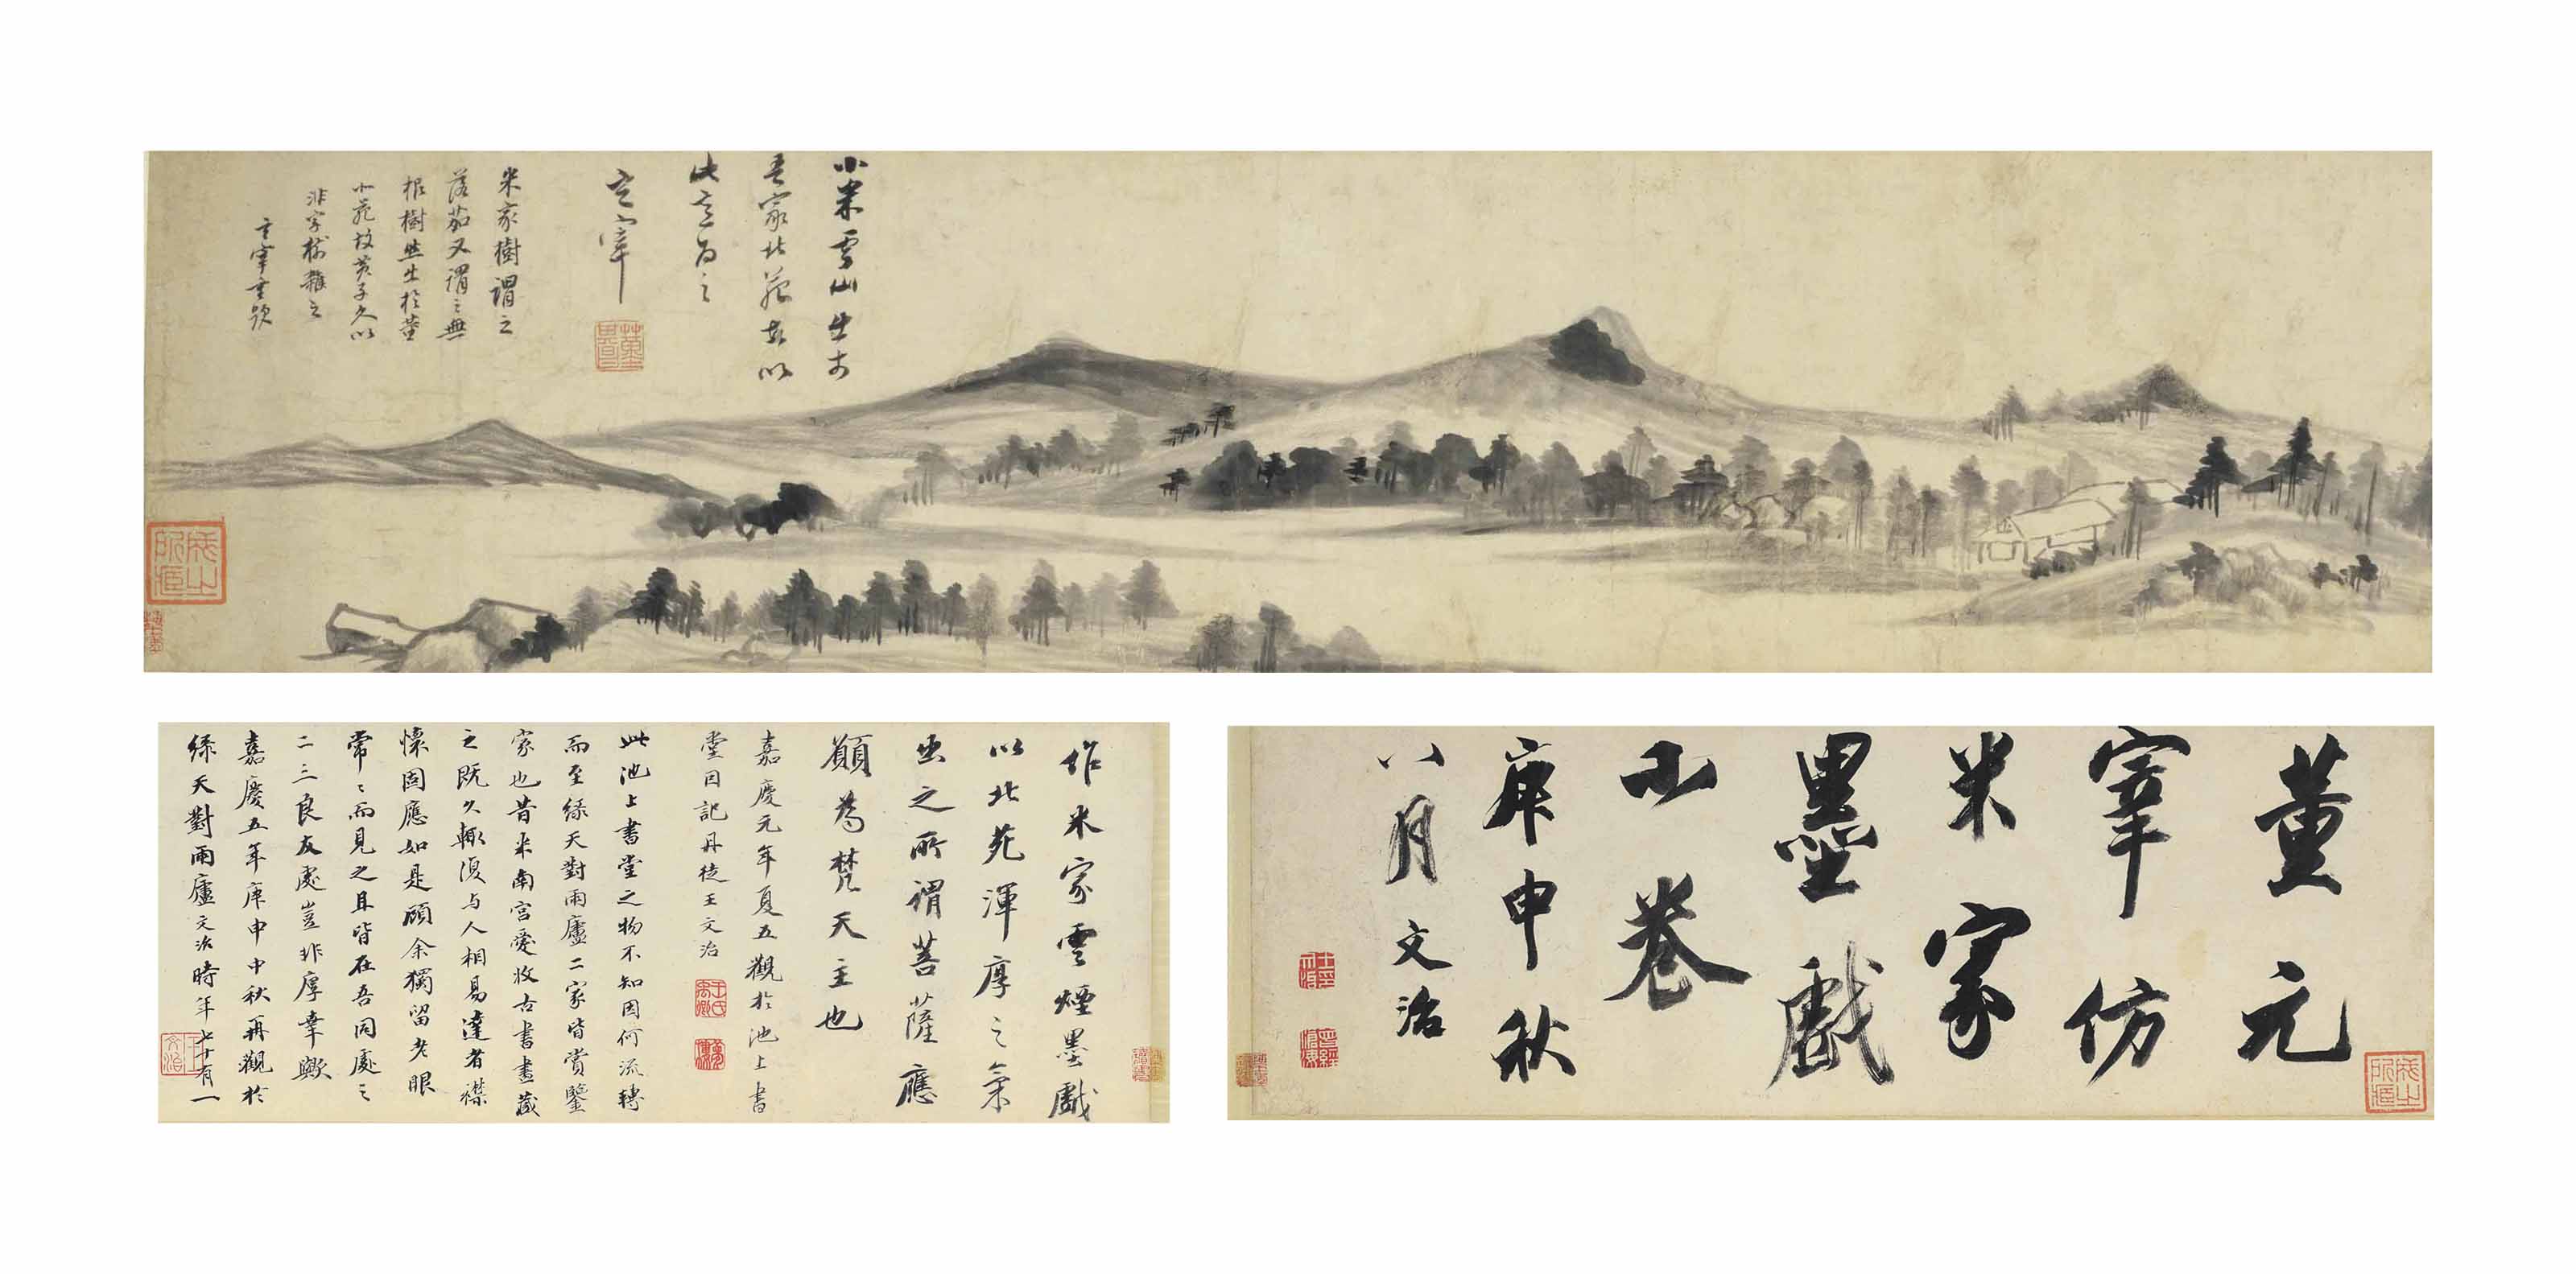 小米雲山出於
吾家北苑故以
此意為之
玄宰
米家樹謂之
落茄又謂之無
根樹然出於董
北苑故黃子久以
非字樹雜之
玄宰重題
董元
宰仿
米家
墨戲
小卷
庚申秋
八月文治
作米家雲煙墨戲
以北苑渾厚之氣
出之所謂菩薩應
願為梵天主也
嘉慶元年夏五觀於池上書
堂因記丹徒王文治
此池上書堂之物不知因何流轉
而至綠天對雨廬二家皆賞鑒
家也昔米南宮愛收古書畫藏
之既久輙復与人相易達者襟
懷固應如是顧余獨留老眼
常々而見之且皆在吾同處之
二三良友處豈非厚幸歟
嘉慶五年庚申中秋再觀於
綠天對雨廬文治時年七十有一